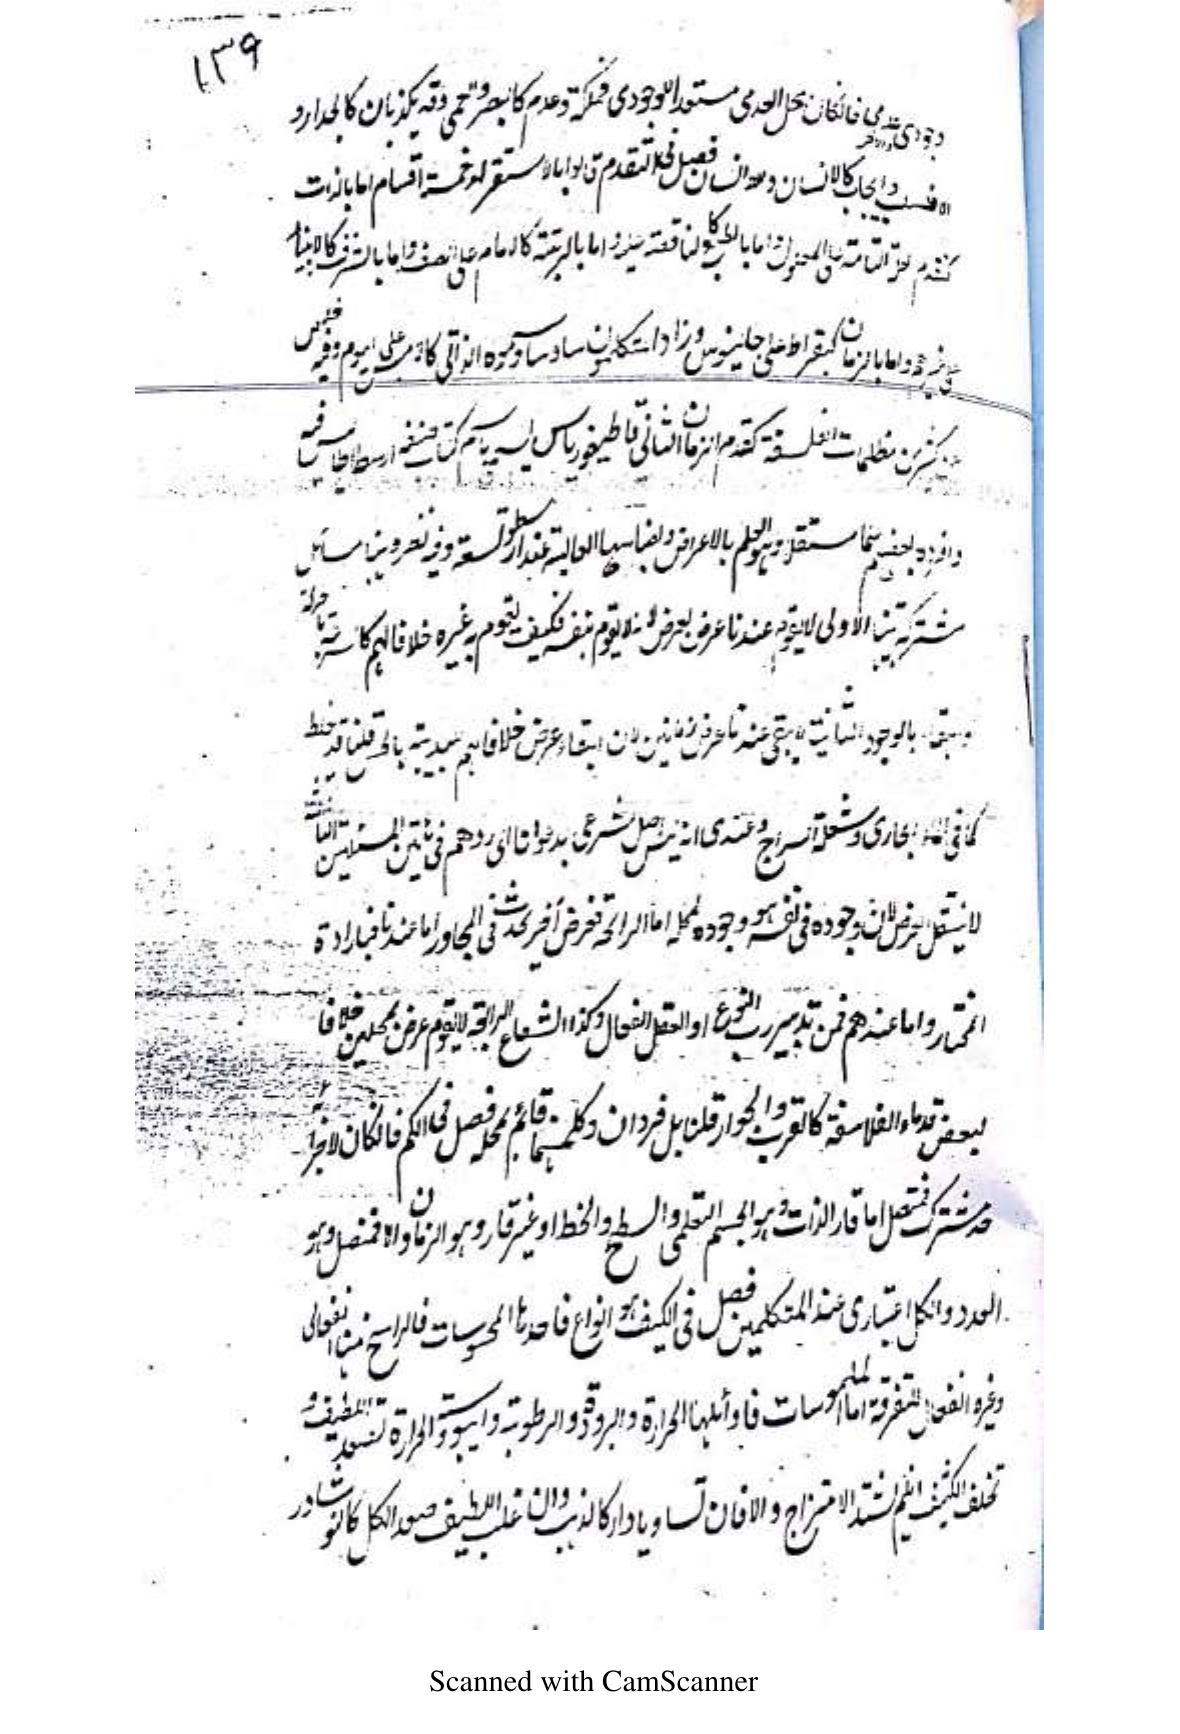 ١٣٩
وجودى عدمى فان كان محل العدمى مستعدا للوجودى فملكة وعدم كالبصر والعمى وقد يكذبان كالجدار و
الا فسلب وايجاب كالانسان و انسان فصل فى التقدم قالوا بالاستقراء خمسة اقسام اما بالذات
كتقدم العلة التامة على المعلول واما بالطبع كالناقصة عليه واما بالرتبة كالامام على الصف واما بالشرف كالانبياء
على غيرهم واما بالزمان كبقراط على جالينوس وزاد المتكلمون سادسا وسموه الذاتى كامس على اليوم وفيه
من ظلمات الفلسفة كتقدم الزمان الثانى قاطيغورياس اسم كتاب صنفه ارسطاطاليس فيه
وافرده بعضهم مستقلا وهو العلم بالاعراض واجناسها العالية عند ارسطو تسعة وفيه مسائل
مشتركة بينها الاولى لا يقوم عندنا عرض بعرض لانه لا يقوم بنفسه فكيف يقوم به غيره خلافا لهم كالسرعة بالحركة
والبقاء بالوجود الثانية لا يبقى عندنا عرض زمانين لان البقاء عرض خلافا لهم بديهة بالحس قلنا قد يغلط
كما فى الماء الجارى وشعلة السراج وعندى انه ليس اصل شرعى يدعونا الى ردهم فى هاتين المسئلتين الثالثة
لا ينتقل العرض لان وجوده فى نفسه هو وجوده لمحله اما الرائحة فعرض آخر يحدث فى المجاور اما عندنا فبارادة
المختار واما عندهم فمن تدبير رب النوع او العقل الفعال وكذا الشعاع الرابعة لا يقوم عرض بمحلين خلافا
لبعض قدماء الفلاسفة كالقرب والجوار قلنا بل فردان وكل منهما قائم بمحله فصل فى الكم فان كان لاجزائه
حد مشترك فمتصل اما قار الذات وهو الجسم التعليمى والسطح والخط او غير قار وهو الزمان والا فمنفصل وهو
العدد والكل اعتبارى عند المتكلمين فصل فى الكيف هو انواع فاحدها المحسوسات فالراسخ منها انفعالى
وغيره انفعال للتفرقة اما الملموسات فاوائلها الحرارة والبرودة والرطوبة واليبوسة والحرارة تصعد اللطيف و
تخلف الكثيف ان لم يشتد الامتزاج والا فان تساويا دار كالذهب وان غلب اللطيف صعد الكل كالنوشادر
Scanned with CamScanner